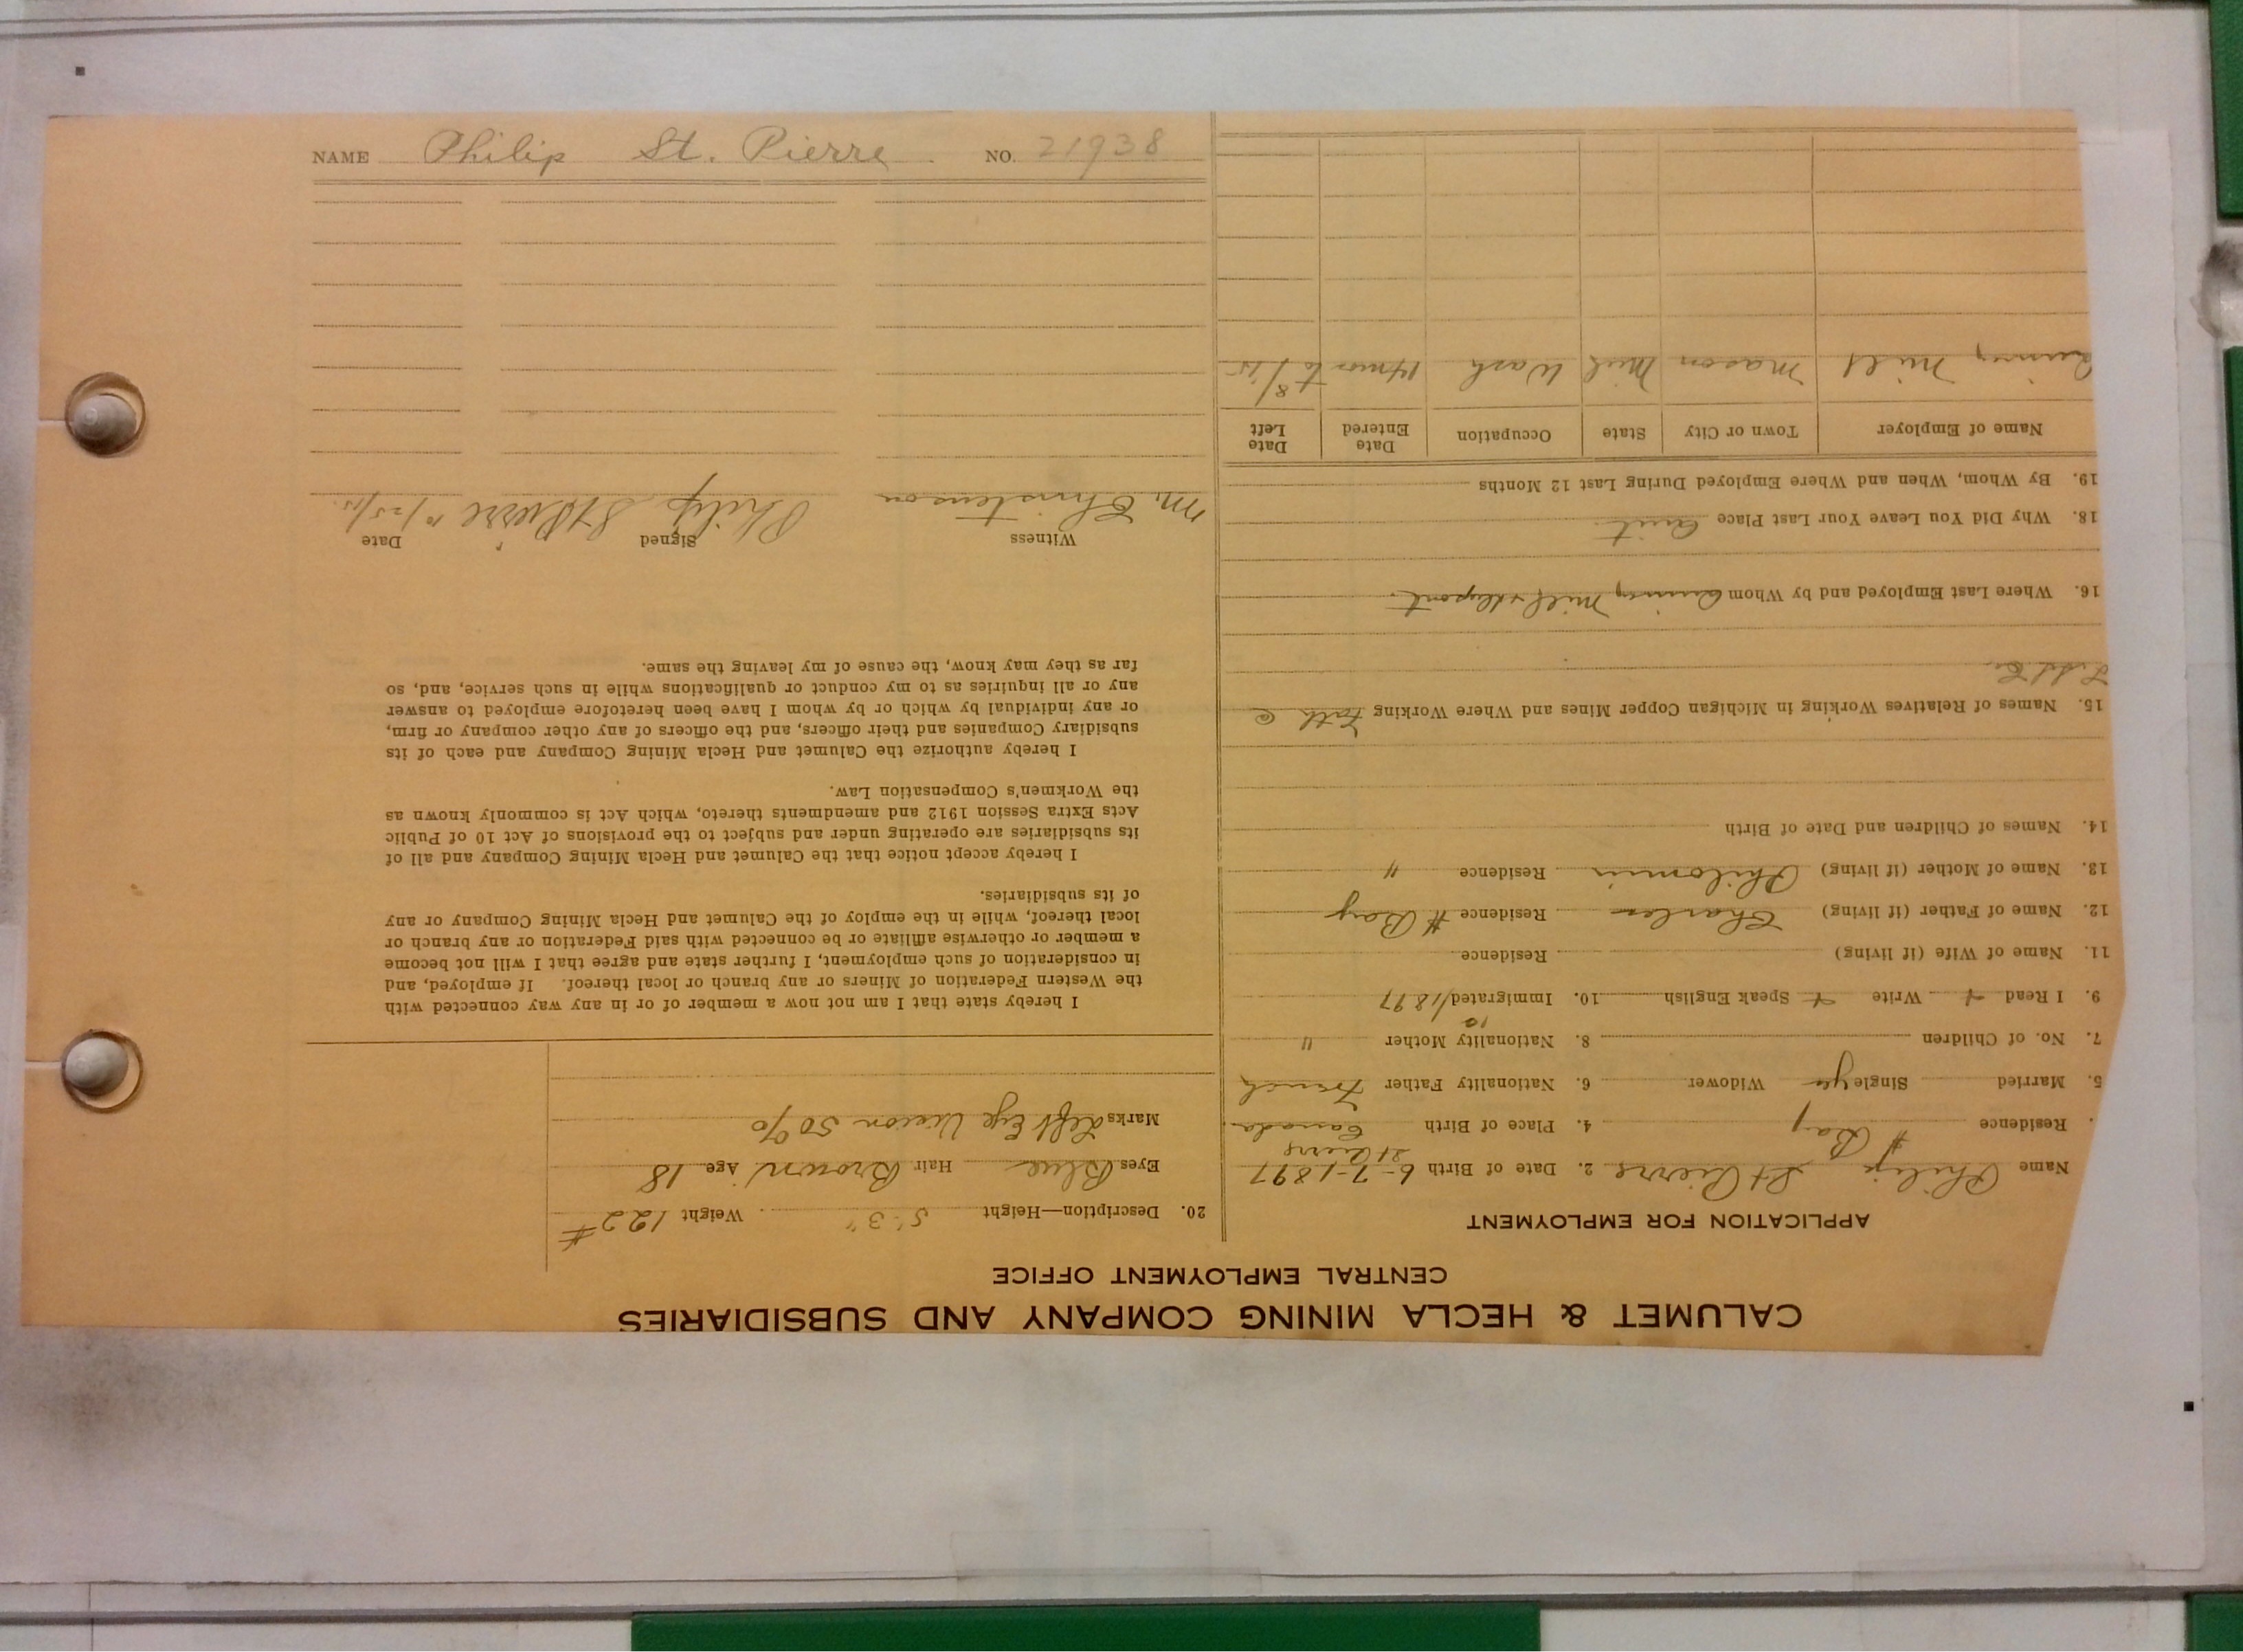 NAME Philip St. Pierre NO. 21938
CALUMET & HECLA MINING COMPANY AND SUBSIDIARIES
CENTRAL EMPLOYMENT OFFICE
APPLICATION FOR EMPLOYMENT
Name Philip St Pierre 2. Date of Birth 6-7-1897
. Residence # Bay 4. Place of Birth St Pierre Canada
5. Married Single yes Widower 6. Nationality Father French
7. No. of Children 8. Nationality Mother "
9. I Read + Write + Speak English 10. Immigrated 10/1897
11. Name of Wife (if living) Residence
12. Name of Father (if living) Charles Residence # Bay
13. Name of Mother (if living) Philomin Residence "
14. Names of Children and Date of Birth
15. Names of Relatives Working in Michigan Copper Mines and Where Working Fath @
16. Where Last Employed and by Whom Quincy Mill
18. Why Did You Leave Your Last Place Quit
19. By Whom, When and Where Employed During Last 12 Months
Name of Employer Town or City State Occupation Date Entered Date Left
Quincy Mill Mason Mich Wash 14 mos to 8/15
20. Description—Height 5' 3" Weight 122#
Eyes Blue Hair Brown Age 18
Marks Left Eye Vision 50%
I hereby state that I am not now a member of or in any way connected with
the Western Federation of Miners or any branch or local thereof. If employed, and
in consideration of such employment, I further state and agree that I will not become
a member or otherwise affiliate or be connected with said Federation or any branch or
local thereof, while in the employ of the Calumet and Hecla Mining Company or any
of its subsidiaries.
I hereby accept notice that the Calumet and Hecla Mining Company and all of
its subsidiaries are operating under and subject to the provisions of Act 10 of Public
Acts Extra Session 1912 and amendments thereto, which Act is commonly known as
the Workmen's Compensation Law.
I hereby authorize the Calumet and Hecla Mining Company and each of its
subsidiary Companies and their officers, and the officers of any other company or firm,
or any individual by which or by whom I have been heretofore employed to answer
any or all inquiries as to my conduct or qualifications while in such service, and, so
far as they may know, the cause of my leaving the same.
Witness Signed Date
M. Christenson Philip St Pierre 10/25/15.